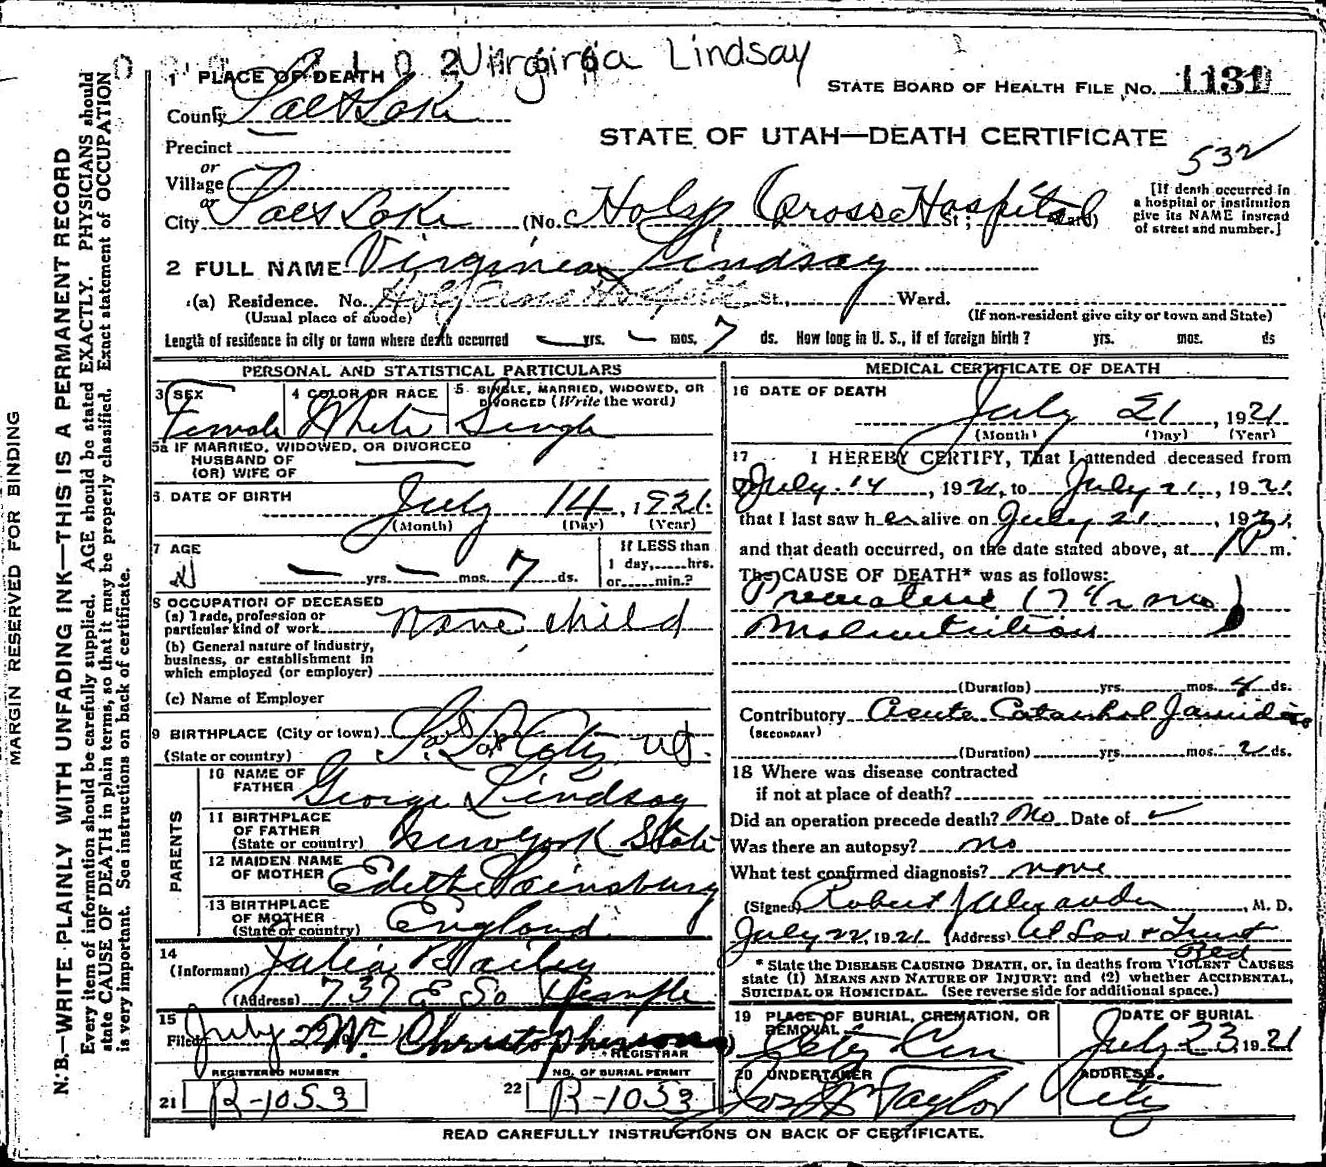 Virginia Lindsay
1 PLACE OF DEATH
STATE BOARD OF HEALTH FILE NO. 1131
County Salt Lake
STATE OF UTAH—DEATH CERTIFICATE
532
Precinct
or
Village
or
City Salt Lake (No. Holy Cross Hospital St.; Ward)
[If death occurred in
a hospital or institution
give its NAME instead
of street and number.]
2 FULL NAME Virginia Lindsay
(a) Residence. No. Holy Cross Hospital St., Ward.
(Usual place of abode) (If non-resident give city or town and State)
Length of residence in city or town where death occurred — yrs. — mos. 7 ds. How long in U. S., if of foreign birth? yrs. mos. ds
PERSONAL AND STATISTICAL PARTICULARS
3 SEX
Female
4 COLOR OR RACE
White
5 SINGLE, MARRIED, WIDOWED, OR
DIVORCED (Write the word)
Single
5a IF MARRIED, WIDOWED, OR DIVORCED
HUSBAND OF
(OR) WIFE OF
6 DATE OF BIRTH July 14, 1921.
(Month) (Day) (Year)
7 AGE
— yrs. — mos. 7 ds.
If LESS than
1 day, hrs.
or min.?
8 OCCUPATION OF DECEASED
(a) Trade, profession or
particular kind of work None, child
(b) General nature of industry,
business, or establishment in
which employed (or employer)
(c) Name of Employer
9 BIRTHPLACE (City or town) Salt Lake City Ut.
(State or country)
PARENTS
10 NAME OF
FATHER George Lindsay
11 BIRTHPLACE
OF FATHER
(State or country) New York State
12 MAIDEN NAME
OF MOTHER Edith Sainsbury
13 BIRTHPLACE
OF MOTHER
(State or country) England
14
(Informant) Julia Bailey
(Address) 737 E So Temple
15
Filed July 22 1921 W. Christopherson
REGISTRAR
REGISTERED NUMBER
21 R-1053
NO. OF BURIAL PERMIT
22 R-1053
MEDICAL CERTIFICATE OF DEATH
16 DATE OF DEATH
July 21, 1921
(Month) (Day) (Year)
17 I HEREBY CERTIFY, That I attended deceased from
July 14, 1921, to July 21, 1921,
that I last saw her alive on July 21, 1921,
and that death occurred, on the date stated above, at 1 P m.
The CAUSE OF DEATH* was as follows:
Premature (7 1/2 mo)
Malnutrition
(Duration) yrs. mos. 4 ds.
Contributory Acute Catarrhal Jaundice
(SECONDARY)
(Duration) yrs. mos. 2 ds.
18 Where was disease contracted
if not at place of death?
Did an operation precede death? No Date of
Was there an autopsy? no
What test confirmed diagnosis? none
(Signed) Robert J Alexander, M. D.
July 22, 1921 (Address) Ut Sav & Trust
Bld
* State the DISEASE CAUSING DEATH, or, in deaths from VIOLENT CAUSES
state (1) MEANS AND NATURE OF INJURY; and (2) whether ACCIDENTAL,
SUICIDAL OR HOMICIDAL. (See reverse side for additional space.)
19 PLACE OF BURIAL, CREMATION, OR
REMOVAL
City Cem
DATE OF BURIAL
July 23, 1921
20 UNDERTAKER
Jos Wm Taylor
ADDRESS.
City
READ CAREFULLY INSTRUCTIONS ON BACK OF CERTIFICATE.
MARGIN RESERVED FOR BINDING
N. B.—WRITE PLAINLY WITH UNFADING INK—THIS IS A PERMANENT RECORD
Every item of information should be carefully supplied. AGE should be stated EXACTLY. PHYSICIANS should
state CAUSE OF DEATH in plain terms, so that it may be properly classified. Exact statement of OCCUPATION
is very important. See instructions on back of certificate.